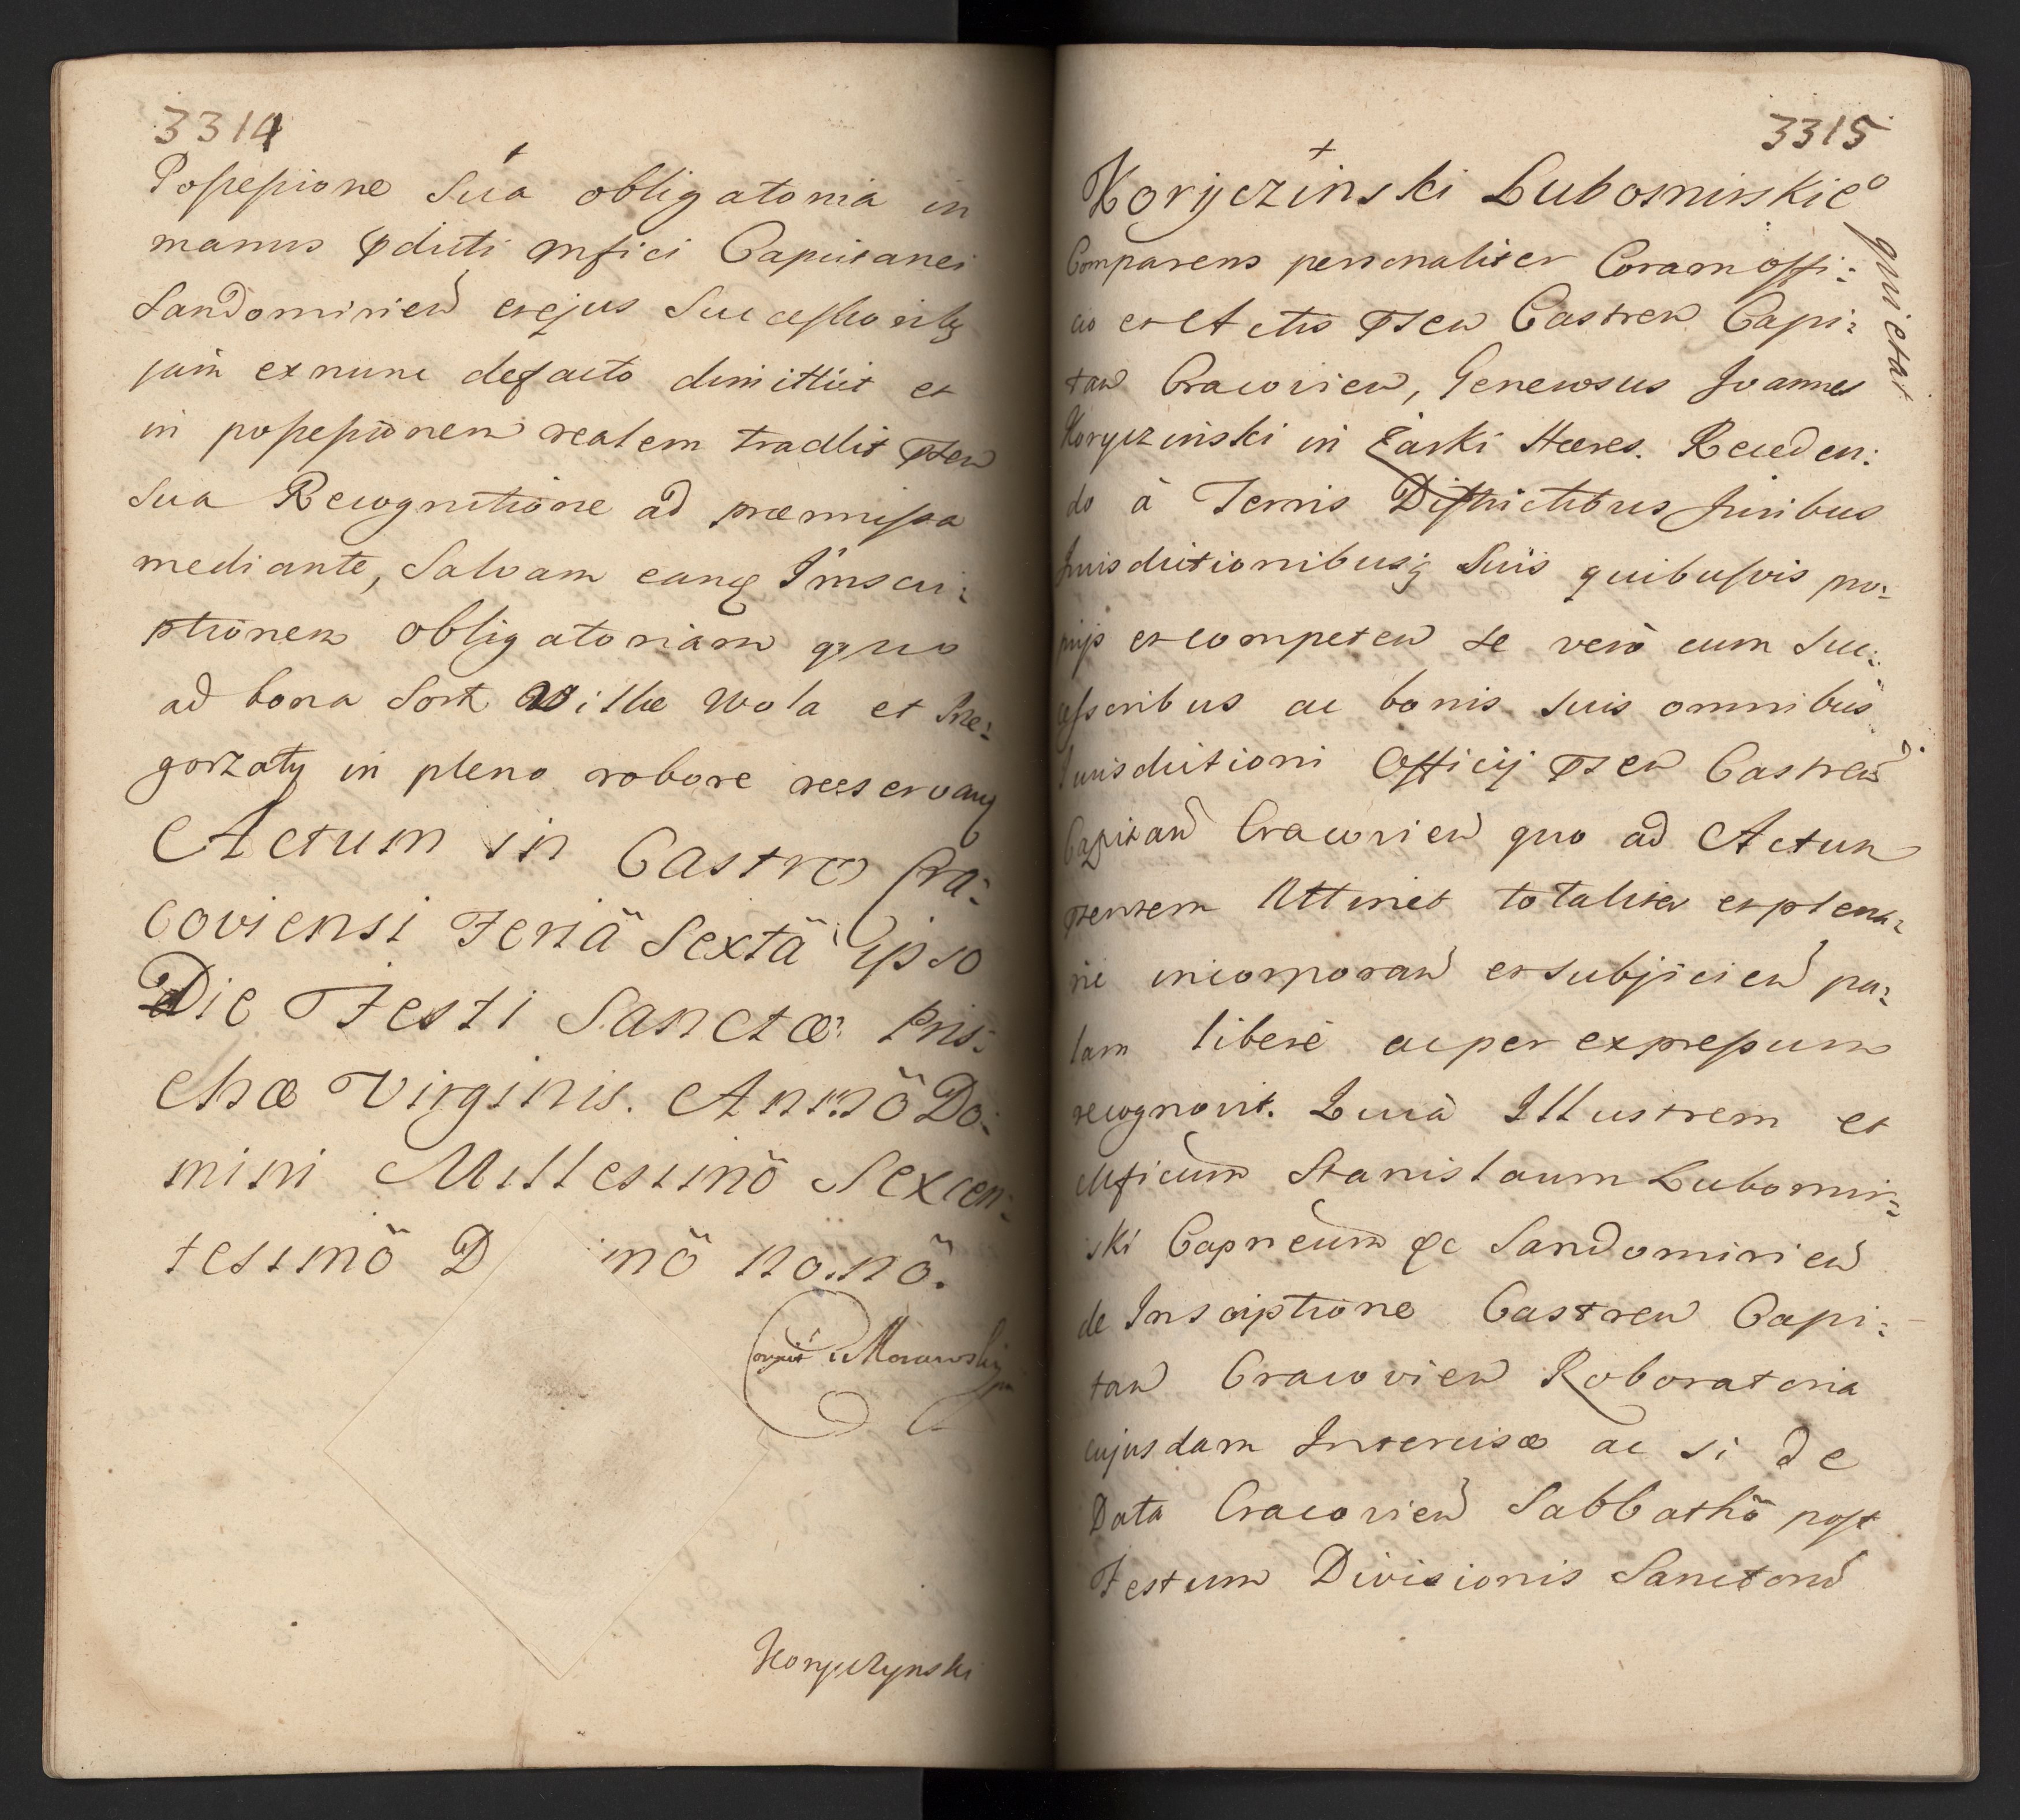 3314
Possessione Sua obligatoria in
manus pdicti Mfici Capitanei
Sandomirien et ejus Successoribq
jam ex nunc de facto dimittit et
in possessionem realem tradlit pten
sua Recognitione ad præmissa
mediante, Salvam eanq Inscri:
ptionem obligatoriam quo
ad bona Sort Villæ Wola et Prze:
gorzaty in pleno robore reservanq
Actum in Castro Cra:
coviensi Feriä Sextä ipso
Die Festi Sanctæ Pris:
chæ Virginis. Annö Do:
mini Millesimö Sexcen:
tesimö D mö nonö.
Correxit Morawski
Koryczynski
3315
Koryczinski Lubomirskieo
quietat
Comparens personaliter Coram offi:
cio et Actis pten Castren Capi:
tan Cracovien, Generosus Joannes
Koryczinski in Żarki Hæres. Receden:
do à Terris Districtibus Juribus
Jurisdictionibusq Suis quibusvis pro:
prijs et competen se verò cum Suc:
cessoribus ac bonis suis omnibus
Jurisdictioni Officij pten Castren
Capitan Cracovien quo ad Actum
ptentem Attinet totaliter et plena:
rie incorporan et subjicien pa:
lam liberè ac per expressum
recognovit. Quià Illustrem et
Mficum Stanislaum Lubomir:
ski Capneum &c Sandomirien
de Inscriptione Castren Capi:
tan Cracovien Roboratoria
cujusdam Intercisæ ac si de
Data Cracovien Sabbathö post
Festum Divisionis Sanctorum